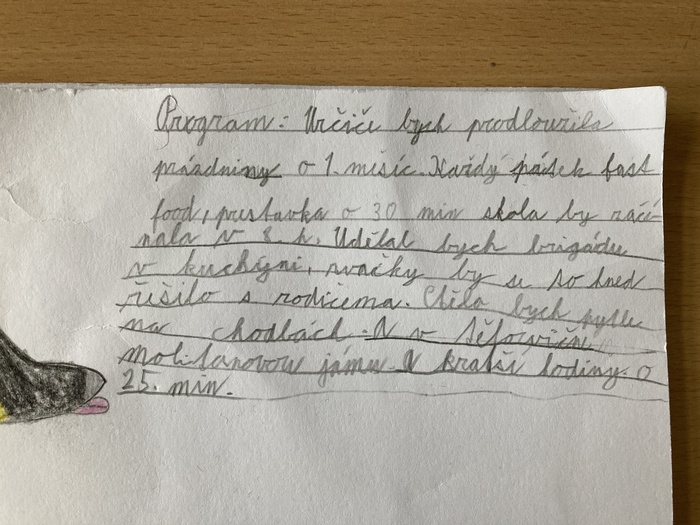 Program: Určiče bych prodloužila
prázdniny o 1. měsíc. Každý pátek fast
food, prestavka o 30 min skola by začí-
nala v 8 h. Udělal bych brigádu
v kuchyni, svačky by se to hned
řišilo s rodičema. Chěla bych pytle
na chodbách. A v tělocvičn
molitanovou jámu. A kratší hodiny o
25. min.